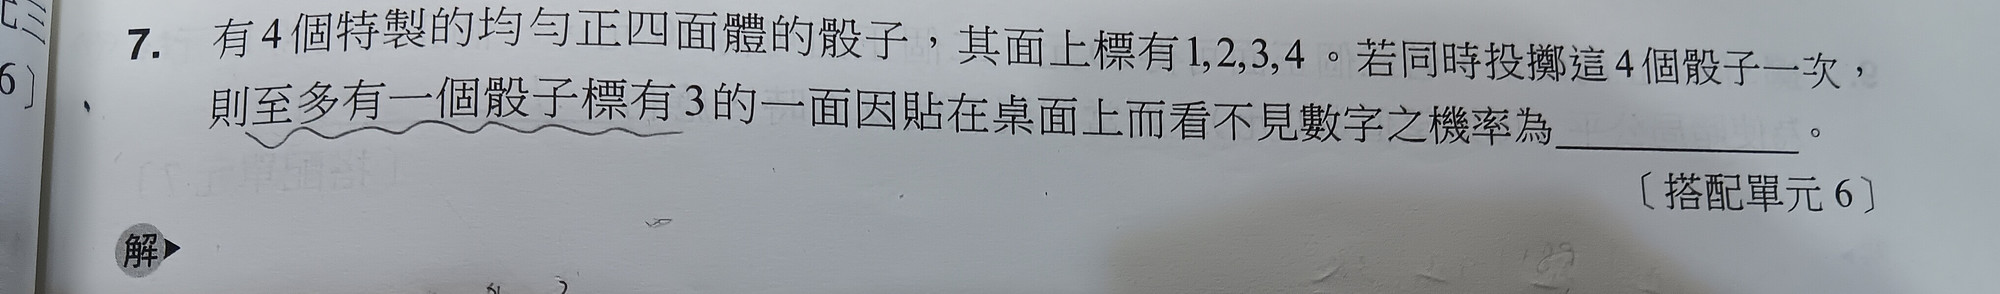 6〕
7. 有4個特製的均勻正四面體的骰子，其面上標有1,2,3,4。若同時投擲這4個骰子一次，
則至多有一個骰子標有3的一面因貼在桌面上而看不見數字之機率為＿＿＿＿＿＿。
〔搭配單元6〕
解